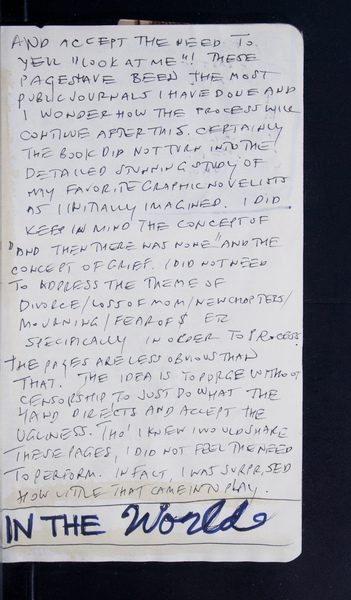 AND ACCEPT THE NEED TO
YELL "LOOK AT ME"! THESE
PAGES HAVE BEEN THE MOST
PUBLIC JOURNALS I HAVE DONE AND
I WONDER HOW THE PROCESS WILL
CONTINUE AFTER THIS. CERTAINLY
THE BOOK DID NOT TURN INTO THE
DETAILED STUNNING STUDY OF
MY FAVORITE GRAPHIC NOVELISTS
AS I INITIALLY IMAGINED. I DID
KEEP IN MIND THE CONCEPT OF
"AND THEN THERE WAS NONE" AND THE
CONCEPT OF GRIEF. I DID NOT NEED
TO ADDRESS THE THEME OF
DIVORCE/LOSS OF MOM/NEW CHAPTERS/
MOURNING/FEAR OF $ ETC
SPECIFICALLY IN ORDER TO PROCESS.
THE PAGES ARE LESS OBVIOUS THAN
THAT. THE IDEA IS TO PURGE WITHOUT
CENSORSHIP TO JUST DO WHAT THE
HAND DIRECTS AND ACCEPT THE
UGLINESS. THO' I KNEW I WOULD SHARE
THESE PAGES, I DID NOT FEEL THE NEED
TO PERFORM. IN FACT, I WAS SURPRISED
HOW LITTLE THAT CAME INTO PLAY.
IN THE World